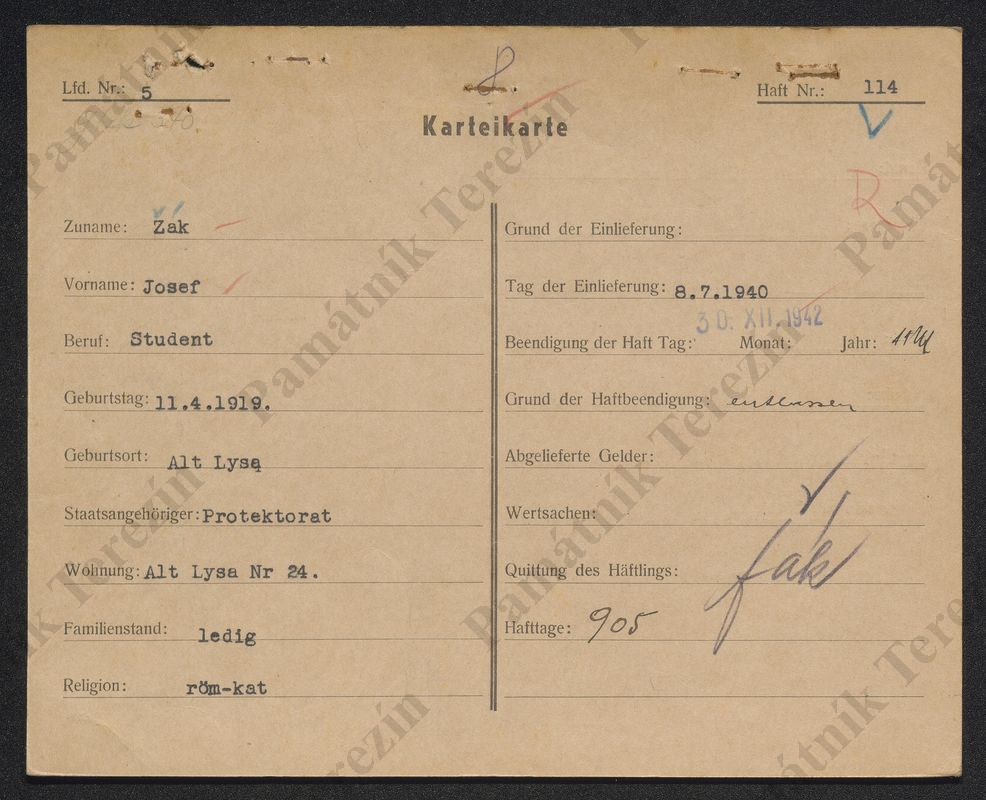 8
Lfd. Nr.: 5
Haft Nr.: 114
Karteikarte
R
Zuname: Žák
Vorname: Josef
Beruf: Student
Geburtstag: 11.4.1919.
Geburtsort: Alt Lysa
Staatsangehöriger: Protektorat
Wohnung: Alt Lysa Nr 24.
Familienstand: ledig
Religion: röm-kat
Grund der Einlieferung:
Tag der Einlieferung: 8.7.1940
30. XII. 1942
Beendigung der Haft Tag: Monat: Jahr:
Grund der Haftbeendigung: entlassen
Abgelieferte Gelder:
Wertsachen:
Quittung des Häftlings: Žák
Hafttage: 905
Památník Terezín
Památník Terezín
Památník Terezín
Památník Terezín